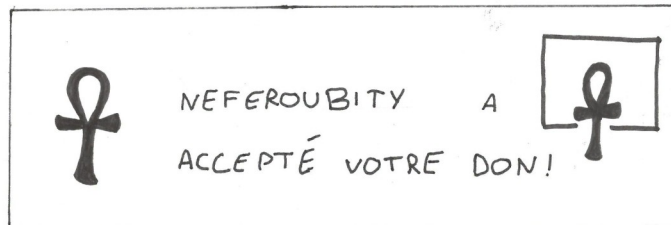 NEFEROUBITY A
ACCEPTÉ VOTRE DON!